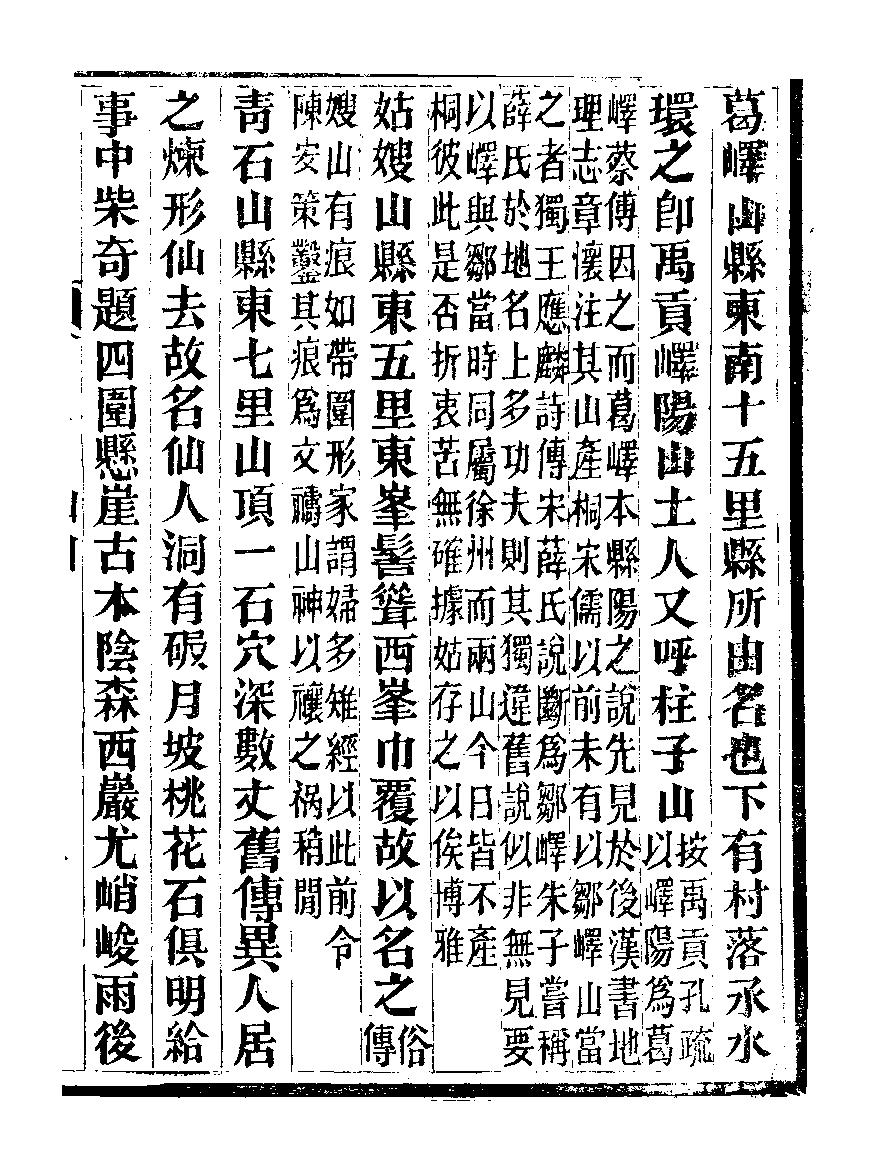 葛嶧山縣東南十五里縣所由名也下有村落承水
環之卽禹貢嶧陽山土人又呼柱子山按禹貢孔疏
以嶧陽爲葛
嶧蔡傳因之而葛嶧本縣陽之說先見於後漢書地
理志章懷注其山產桐宋儒以前未有以鄒嶧山當
之者獨王應麟詩傳宋薛氏說斷爲鄒嶧朱子嘗稱
薛氏於地名上多功夫則其獨違舊說似非無見要
以嶧與鄒當時同屬徐州而兩山今日皆不產
桐彼此是否折衷苦無確據姑存之以俟博雅
姑嫂山縣東五里東峯髻聳西峯巾覆故以名之俗
傳
嫂山有痕如帶圍形家謂婦多雉經以此前令
陳安策鑿其痕爲文禱山神以禳之禍稍閒
靑石山縣東七里山項一石穴深數丈舊傳異人居
之煉形仙去故名仙人洞有月坡桃花石俱明給
事中柴奇題四圍懸崖古木陰森西巖尤峭峻雨後